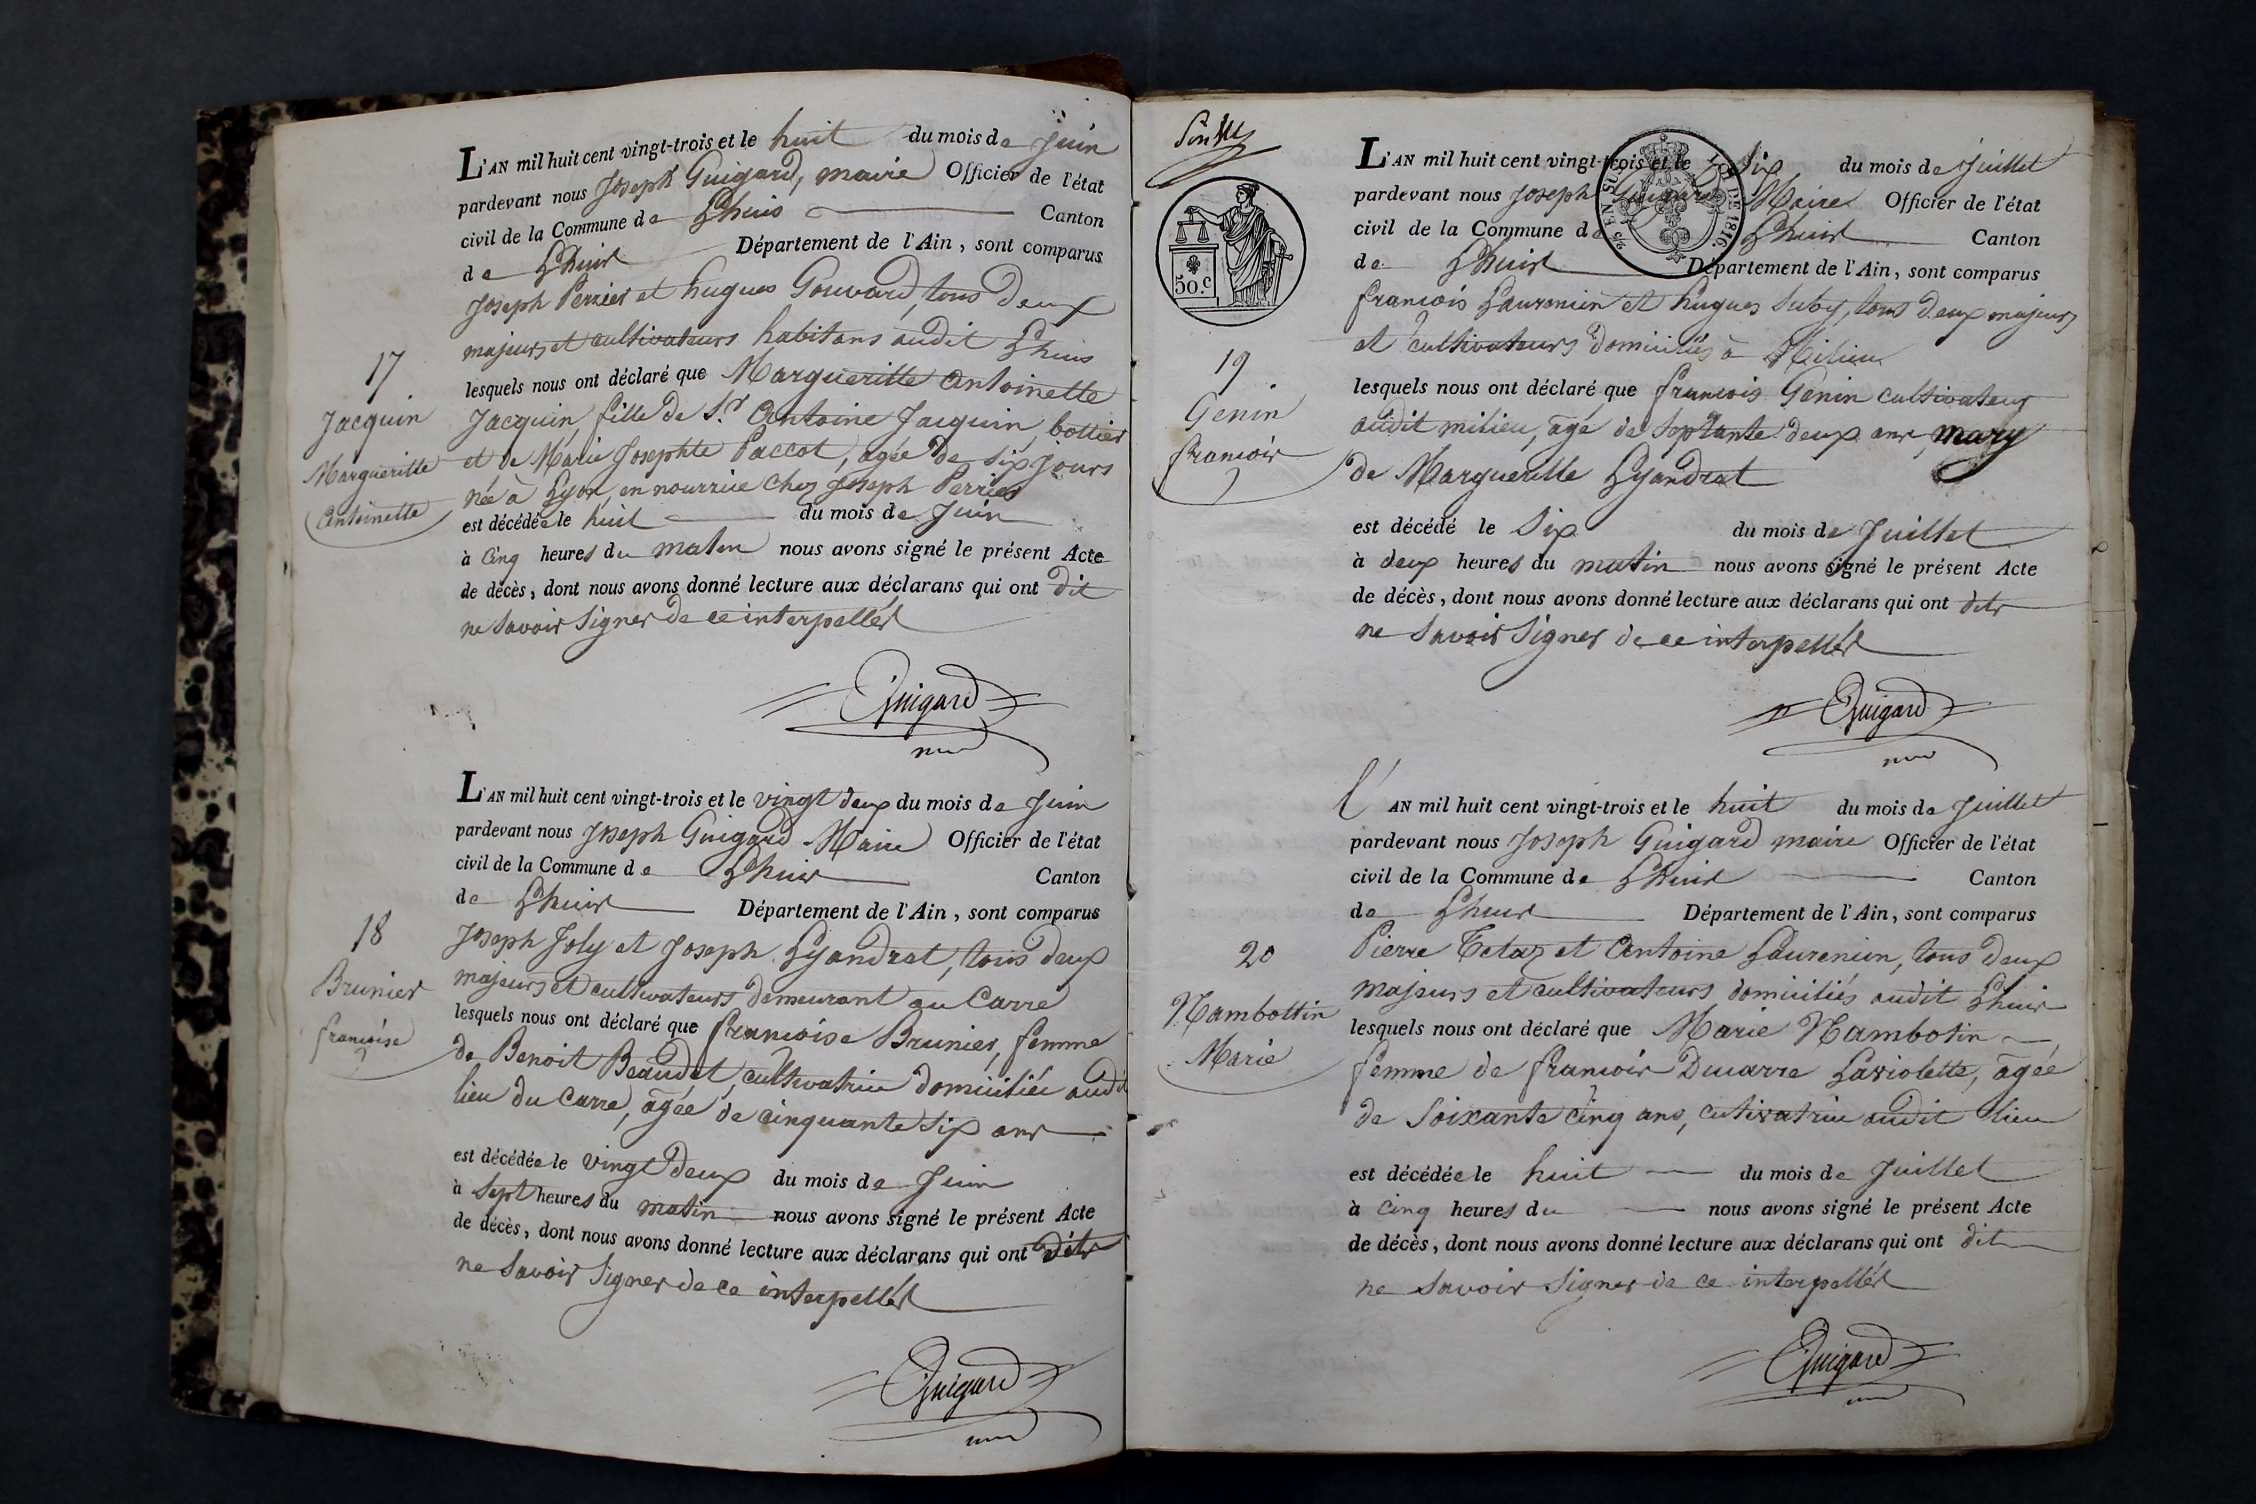 L'AN mil huit cent vingt-trois et le huit du mois de Juin
pardevant nous Joseph Guigard, maire Officier de l'état
civil de la Commune de Lhuis Canton
de Lhuis Département de l'Ain, sont comparus
Joseph Perrier et hugues Gouvard, tous deux
majeurs et cultivateurs habitans audit Lhuis
17
lesquels nous ont déclaré que Margueritte Antoinette
Jacquin
Jacquin, fille de Sr. Antoine Jacquin, bottier
Margueritte
et de Marie Josephte Paccot, agée de six jours
née à Lyon, en nourrice chez Joseph Perrier
Antoinette
est décédée le huit du mois de Juin
à Cinq heures du matin nous avons signé le présent Acte
de décès, dont nous avons donné lecture aux déclarans qui ont dit
ne savoir signer de ce interpellés
Guigard
L'AN mil huit cent vingt-trois et le vingt deux du mois de Juin
pardevant nous Joseph Guigard Maire Officier de l'état
civil de la Commune de Lhuis Canton
de Lhuis Département de l'Ain, sont comparus
18
Joseph Joly et Joseph Lyandrat, tous deux
majeurs et cultivateurs demeurant au Carre
Brunier
lesquels nous ont déclaré que francoise Brunier, femme
francoise
de Benoit Beaudet, cultivatrice domiciliée audit
lieu du Carre, agée de cinquante six ans
est décédée le vingt deux du mois de Juin
à sept heures du matin nous avons signé le présent Acte
de décès, dont nous avons donné lecture aux déclarans qui ont dits
ne savoir signer de ce interpellés
Guigard
50.c
L'AN mil huit cent vingt-trois et le Six du mois de Juillet
pardevant nous Joseph Guigard Maire Officier de l'état
civil de la Commune de Lhuis Canton
de Lhuis Département de l'Ain, sont comparus
DE 1816
francois Laurencin et hugues Suby, tous deux majeurs
et cultivateurs domiciliés à Milieu
19
lesquels nous ont déclaré que francois Genin cultivateur
Genin
audit milieu, agé de septante deux ans, mary
francois
de Marguerille Lyandrat
est décédé le Six du mois de Juillet
à deux heures du matin nous avons signé le présent Acte
de décès, dont nous avons donné lecture aux déclarans qui ont dits
ne savoir signer de ce interpellés
Guigard
L'AN mil huit cent vingt-trois et le huit du mois de Juillet
pardevant nous Joseph Guigard maire Officier de l'état
civil de la Commune de Lhuis Canton
de Lhuis Département de l'Ain, sont comparus
20
Pierre Tetaz et Antoine Laurencin, tous deux
majeurs et cultivateurs domiciliés audit Lhuis
Nambottin
lesquels nous ont déclaré que Marie Nambotin
Marie
femme de francois Ducarre Laviolette, agée
de Soixante cinq ans, cutivatrice audit lieu
est décédée le huit du mois de Juillet
à Cinq heures du nous avons signé le présent Acte
de décès, dont nous avons donné lecture aux déclarans qui ont dit
ne savoir signer de ce interpellés
Guigard